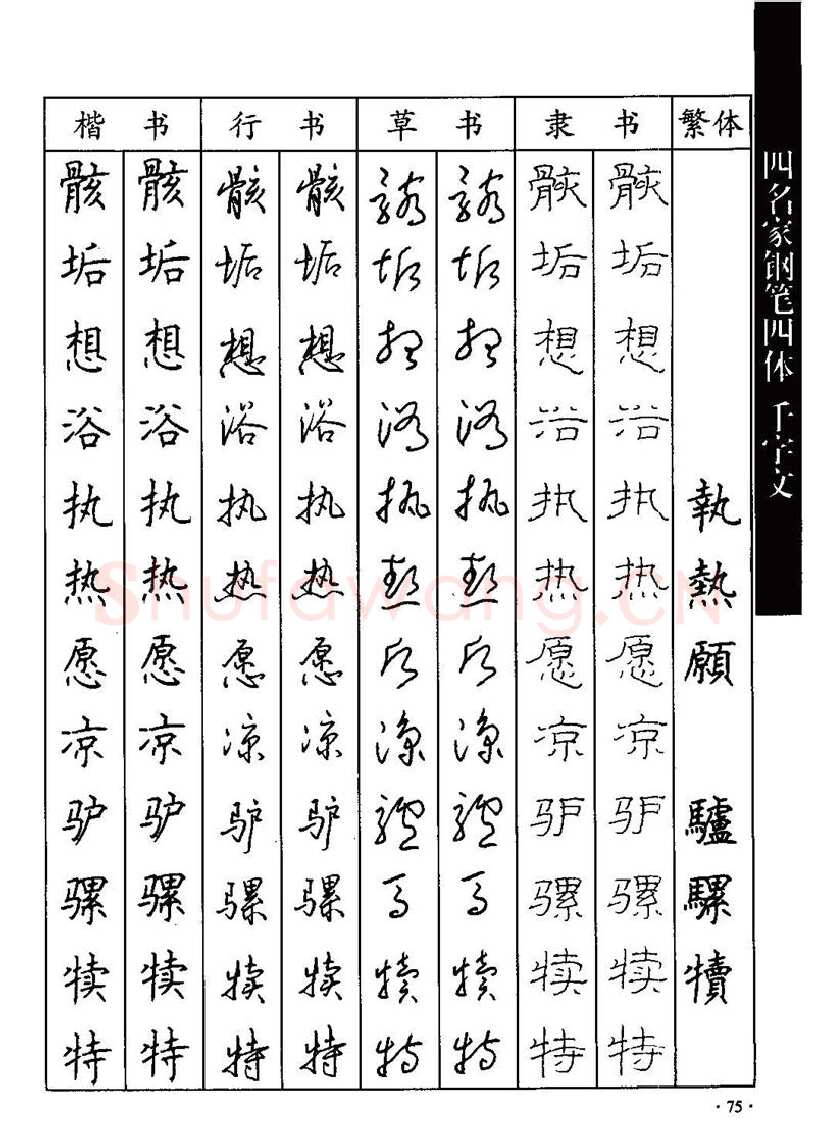 楷书 行书 草书 隶书 繁体
骸 骸 骸 骸 骸 骸 骸 骸
垢 垢 垢 垢 垢 垢 垢 垢
想 想 想 想 想 想 想 想
浴 浴 浴 浴 浴 浴 浴 浴
执 执 执 执 执 执 执 执 執
热 热 热 热 热 热 热 热 熱
愿 愿 愿 愿 愿 愿 愿 愿 願
凉 凉 凉 凉 凉 凉 凉 凉
驴 驴 驴 驴 驴 驴 驴 驴 驢
骡 骡 骡 骡 骡 骡 骡 骡 騾
犊 犊 犊 犊 犊 犊 犊 犊 犢
特 特 特 特 特 特 特 特
四名家钢笔四体 千字文
Shufawang.CN
·75·